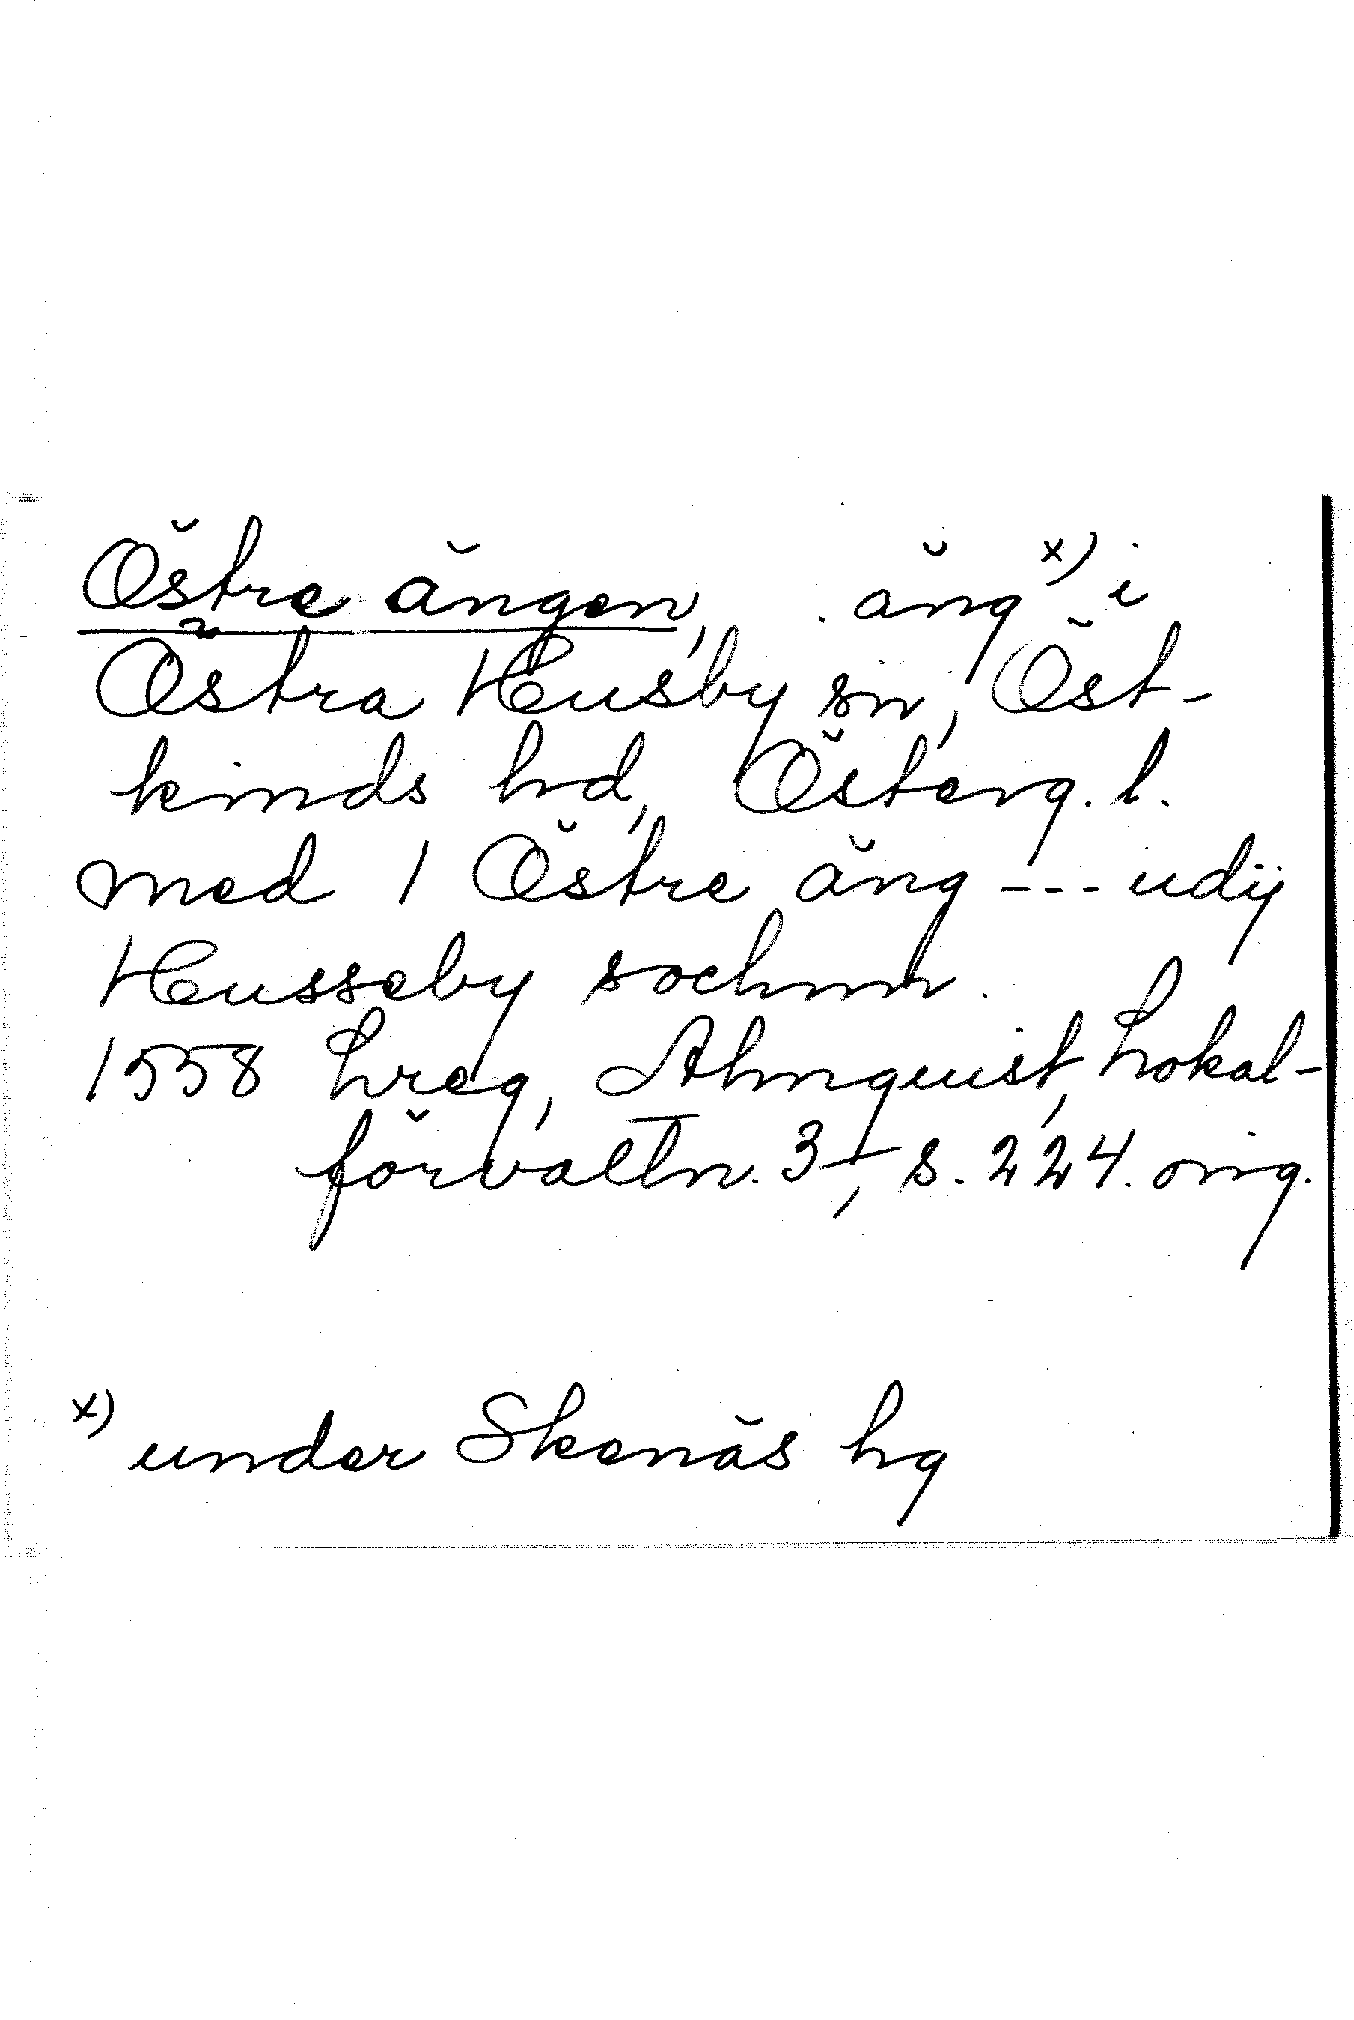 Östre ängen, äng x) i
Östra Husby sn, Öst-
kinds hd, Österg. l.
med 1 Östre äng --- udij
Husseby sochnn.
1558 Lreg, Almquist, Lokal-
förvaltn. 3, s. 224. orig.
x) under Skenäs hg